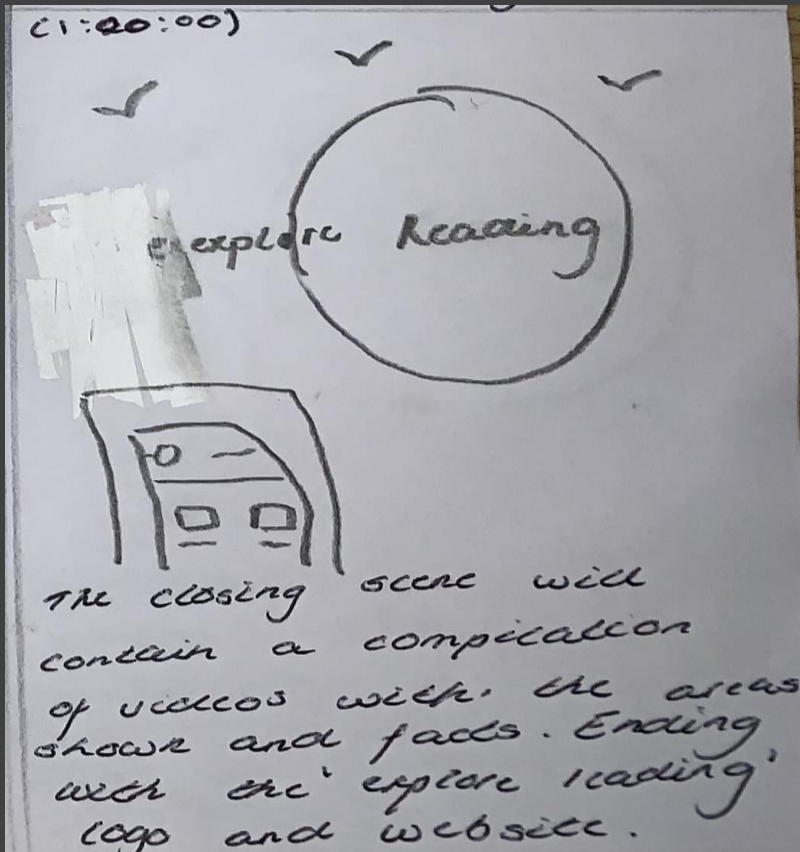 (1:20:00)
explore Reading
The closing scene will
contain a compilation
of videos with. the areas
shown and facts. Ending
with the 'explore reading'
logo and website.